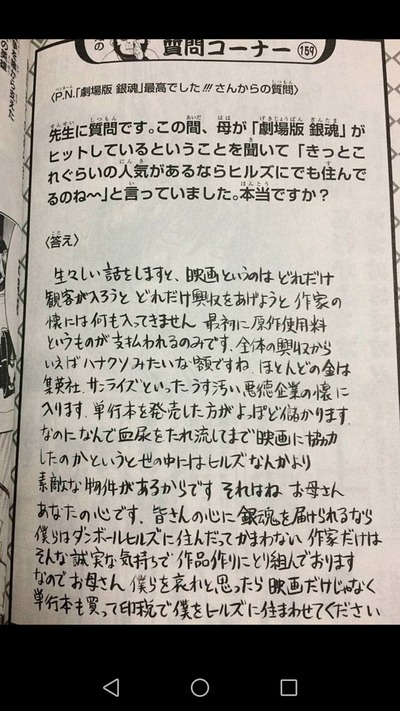 質問コーナー 159
〈P.N.「劇場版 銀魂」最高でした!!! さんからの質問〉
先生に質問です。この間、母が「劇場版 銀魂」が
ヒットしているということを聞いて「きっとこ
れぐらいの人気があるならヒルズにでも住んで
るのね〜〜」と言っていました。本当ですか?
〈答え〉
生々しい話をしますと、映画というのは どれだけ
観客が入ろうと どれだけ興収をあげようと 作家の
懐には何も入ってきません 最初に原作使用料
というものが支払われるのみです。全体の興収から
いえばハナクソみたいな額ですね。ほとんどの金は
集英社 サンライズといった うす汚い悪徳企業の懐に
入ります。単行本を発売した方がよっぽど儲かります。
なのになんで血尿をたれ流してまで映画に協力
したのかというと世の中にはヒルズなんかより
素敵な物件があるからです それはね お母さん
あなたの心です。皆さんの心に銀魂を届けられるなら
僕らはダンボールヒルズに住んだってかまわない 作家だけは
そんな誠実な気持ちで 作品作りにとり組んでおります
なのでお母さん 僕らを哀れと思ったら 映画だけじゃなく
単行本も買って印税で僕をヒルズに住まわせてください